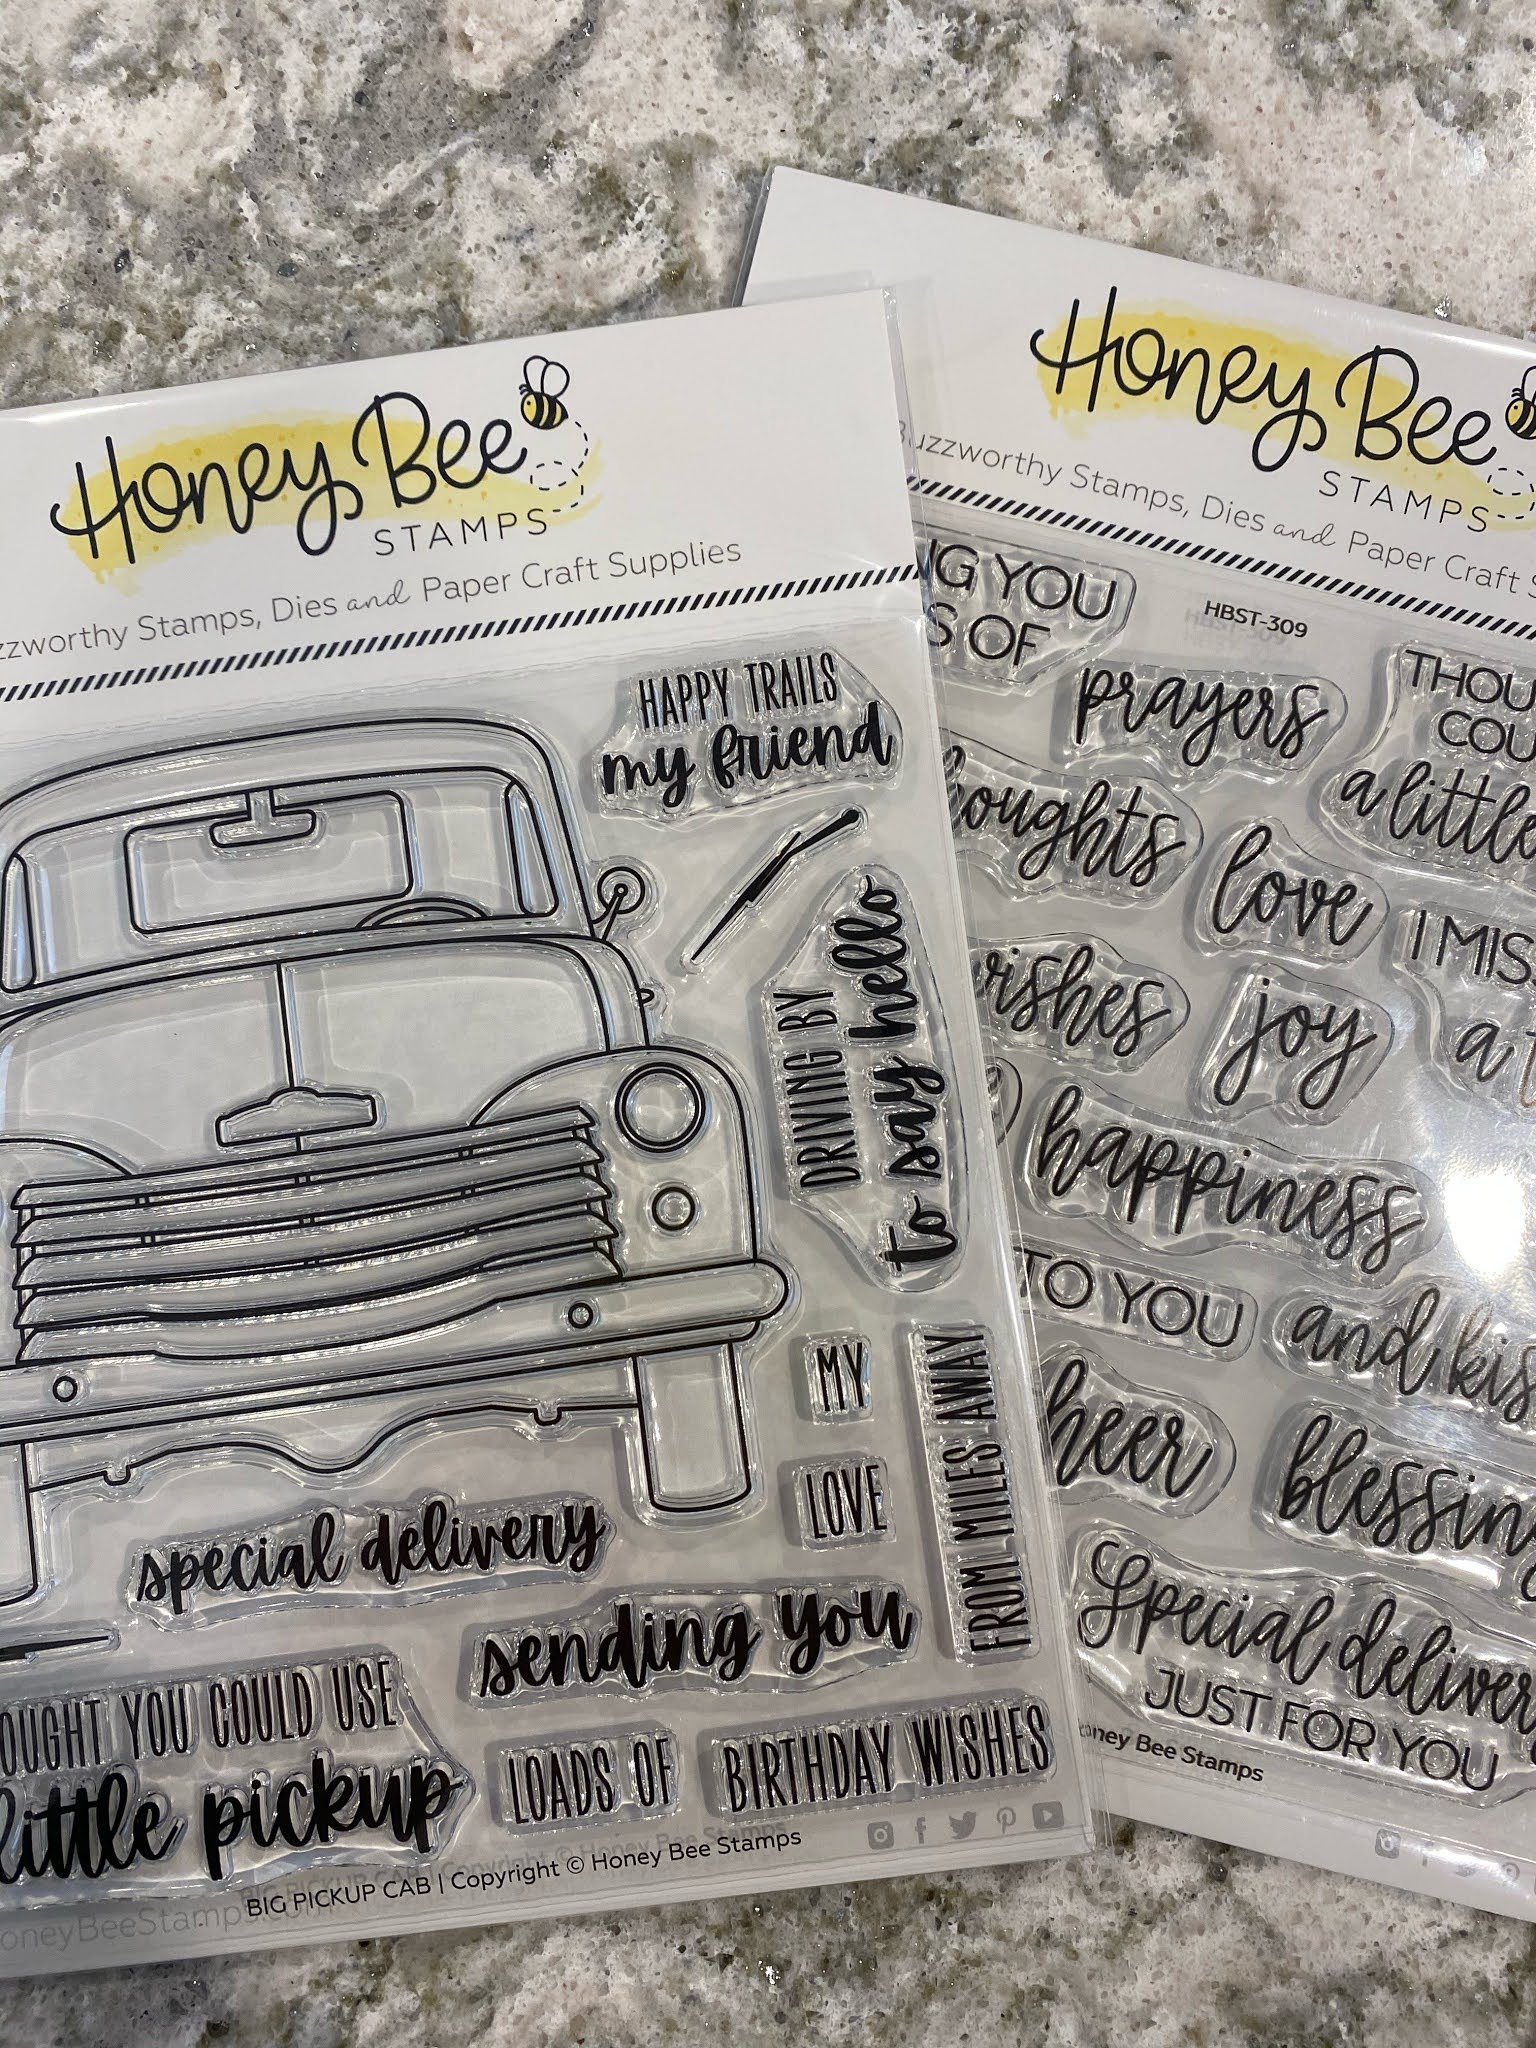 Honey Bee
STAMPS
Stamps, Dies and Paper Craft Supplies
HAPPY TRAILS
my friend
DRIVING BY
to say hello
MY
LOVE
FROM MILES AWAY
special delivery
sending you
YOU COULD USE
little pickup
LOADS OF
BIRTHDAY WISHES
BIG PICKUP CAB | Copyright © Honey Bee Stamps
Honey Bee
STAMPS
Buzzworthy Stamps, Dies and Paper Craft
HBST-309
YOU
OF
prayers
a little
love
I
joy
a
happiness
TO YOU
and
Special
JUST FOR YOU
Bee Stamps